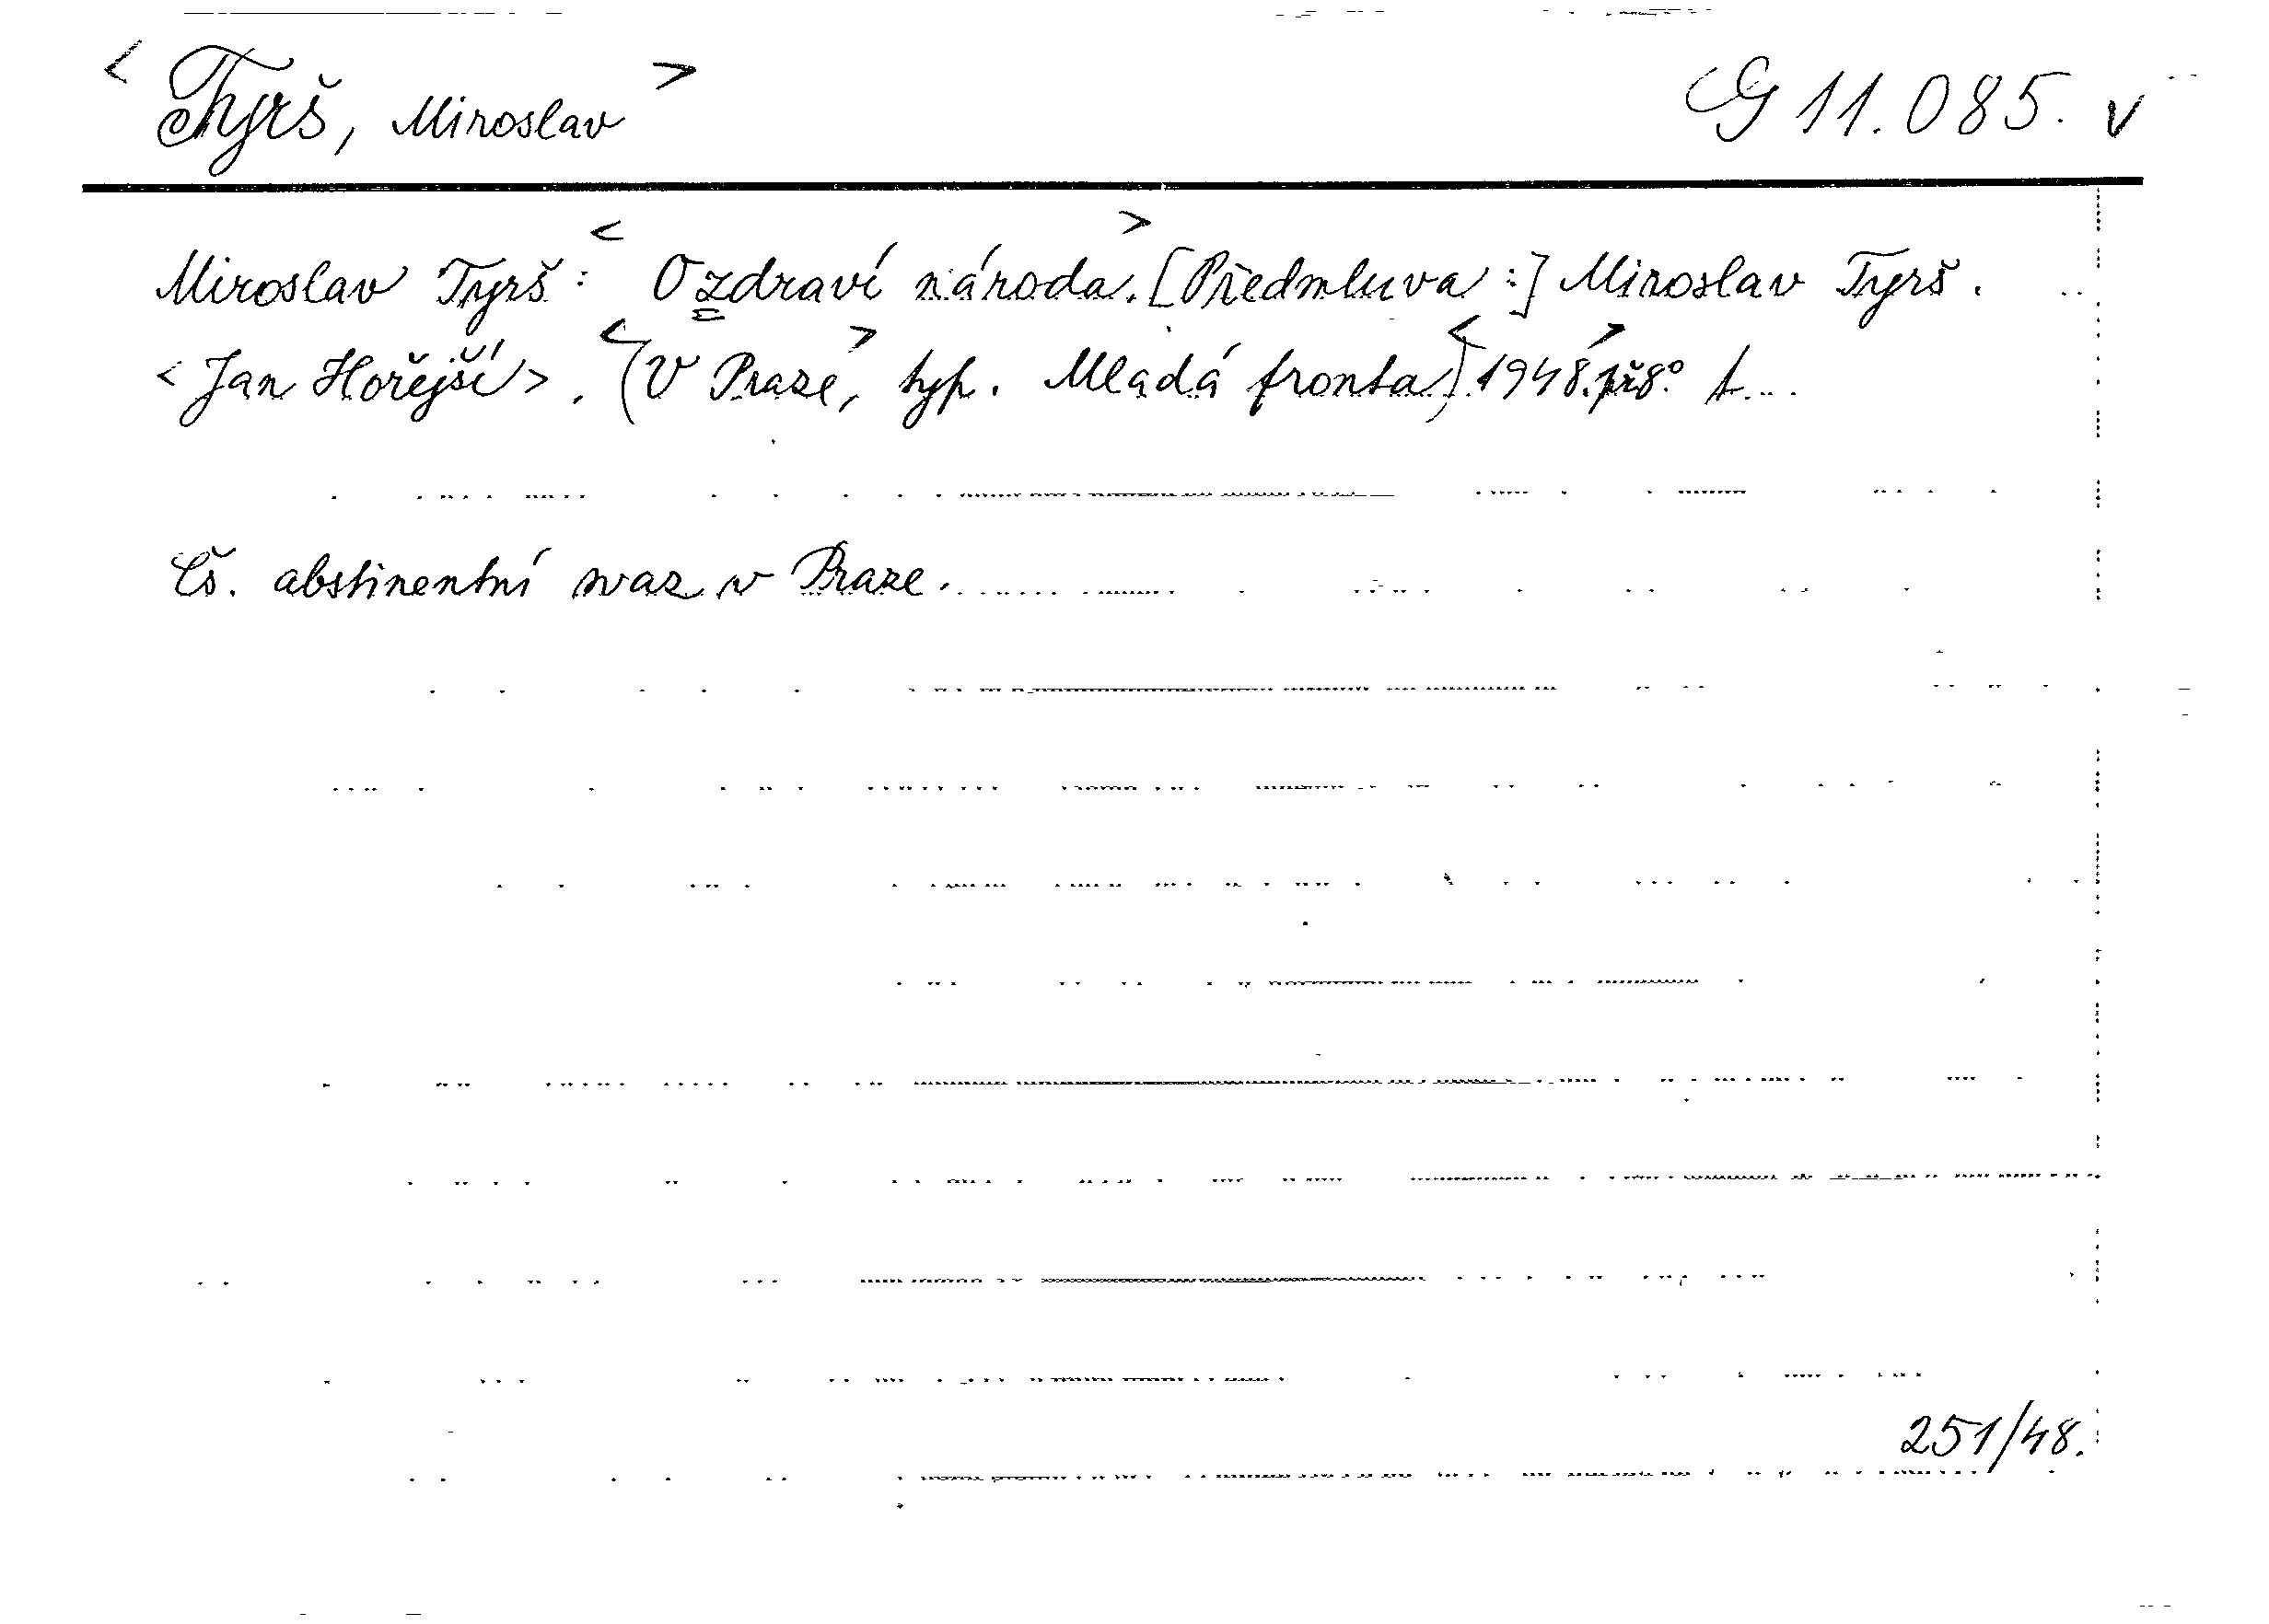 < Tyrš, Miroslav > G 11.085. v
Miroslav Tyrš: < O zdraví národa. > [Předmluva:] Miroslav Tyrš.
< Jan Hořejší >. < (V Praze, > typ. Mladá fronta) < 1948. > 8° 1...
Čs. abstinentní svaz v Praze.
251/48.